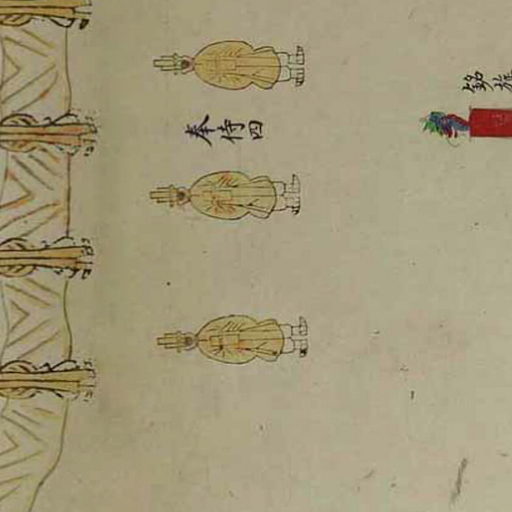 奉侍四
銘旌